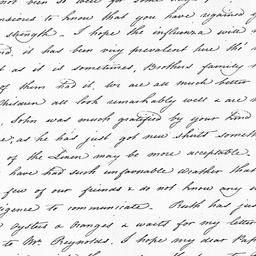 not been so well for some
anxious to know that you have regained y
strength - I hope the influenza will n
it has been very prevalent here tho' n
t as it is sometimes, Brothers family
of them had it, we are all much better
Children all look remarkably well & are
John was much gratified by your kind
as he has just got new shirts some
of the Linen may be more acceptable.
have had such unfavorable weather that
few of our friends & do not know any
igence to communicate. Ruth has jus
oysters & oranges & waits for my letter
to Mr. Reynolds. I hope my dear Pap